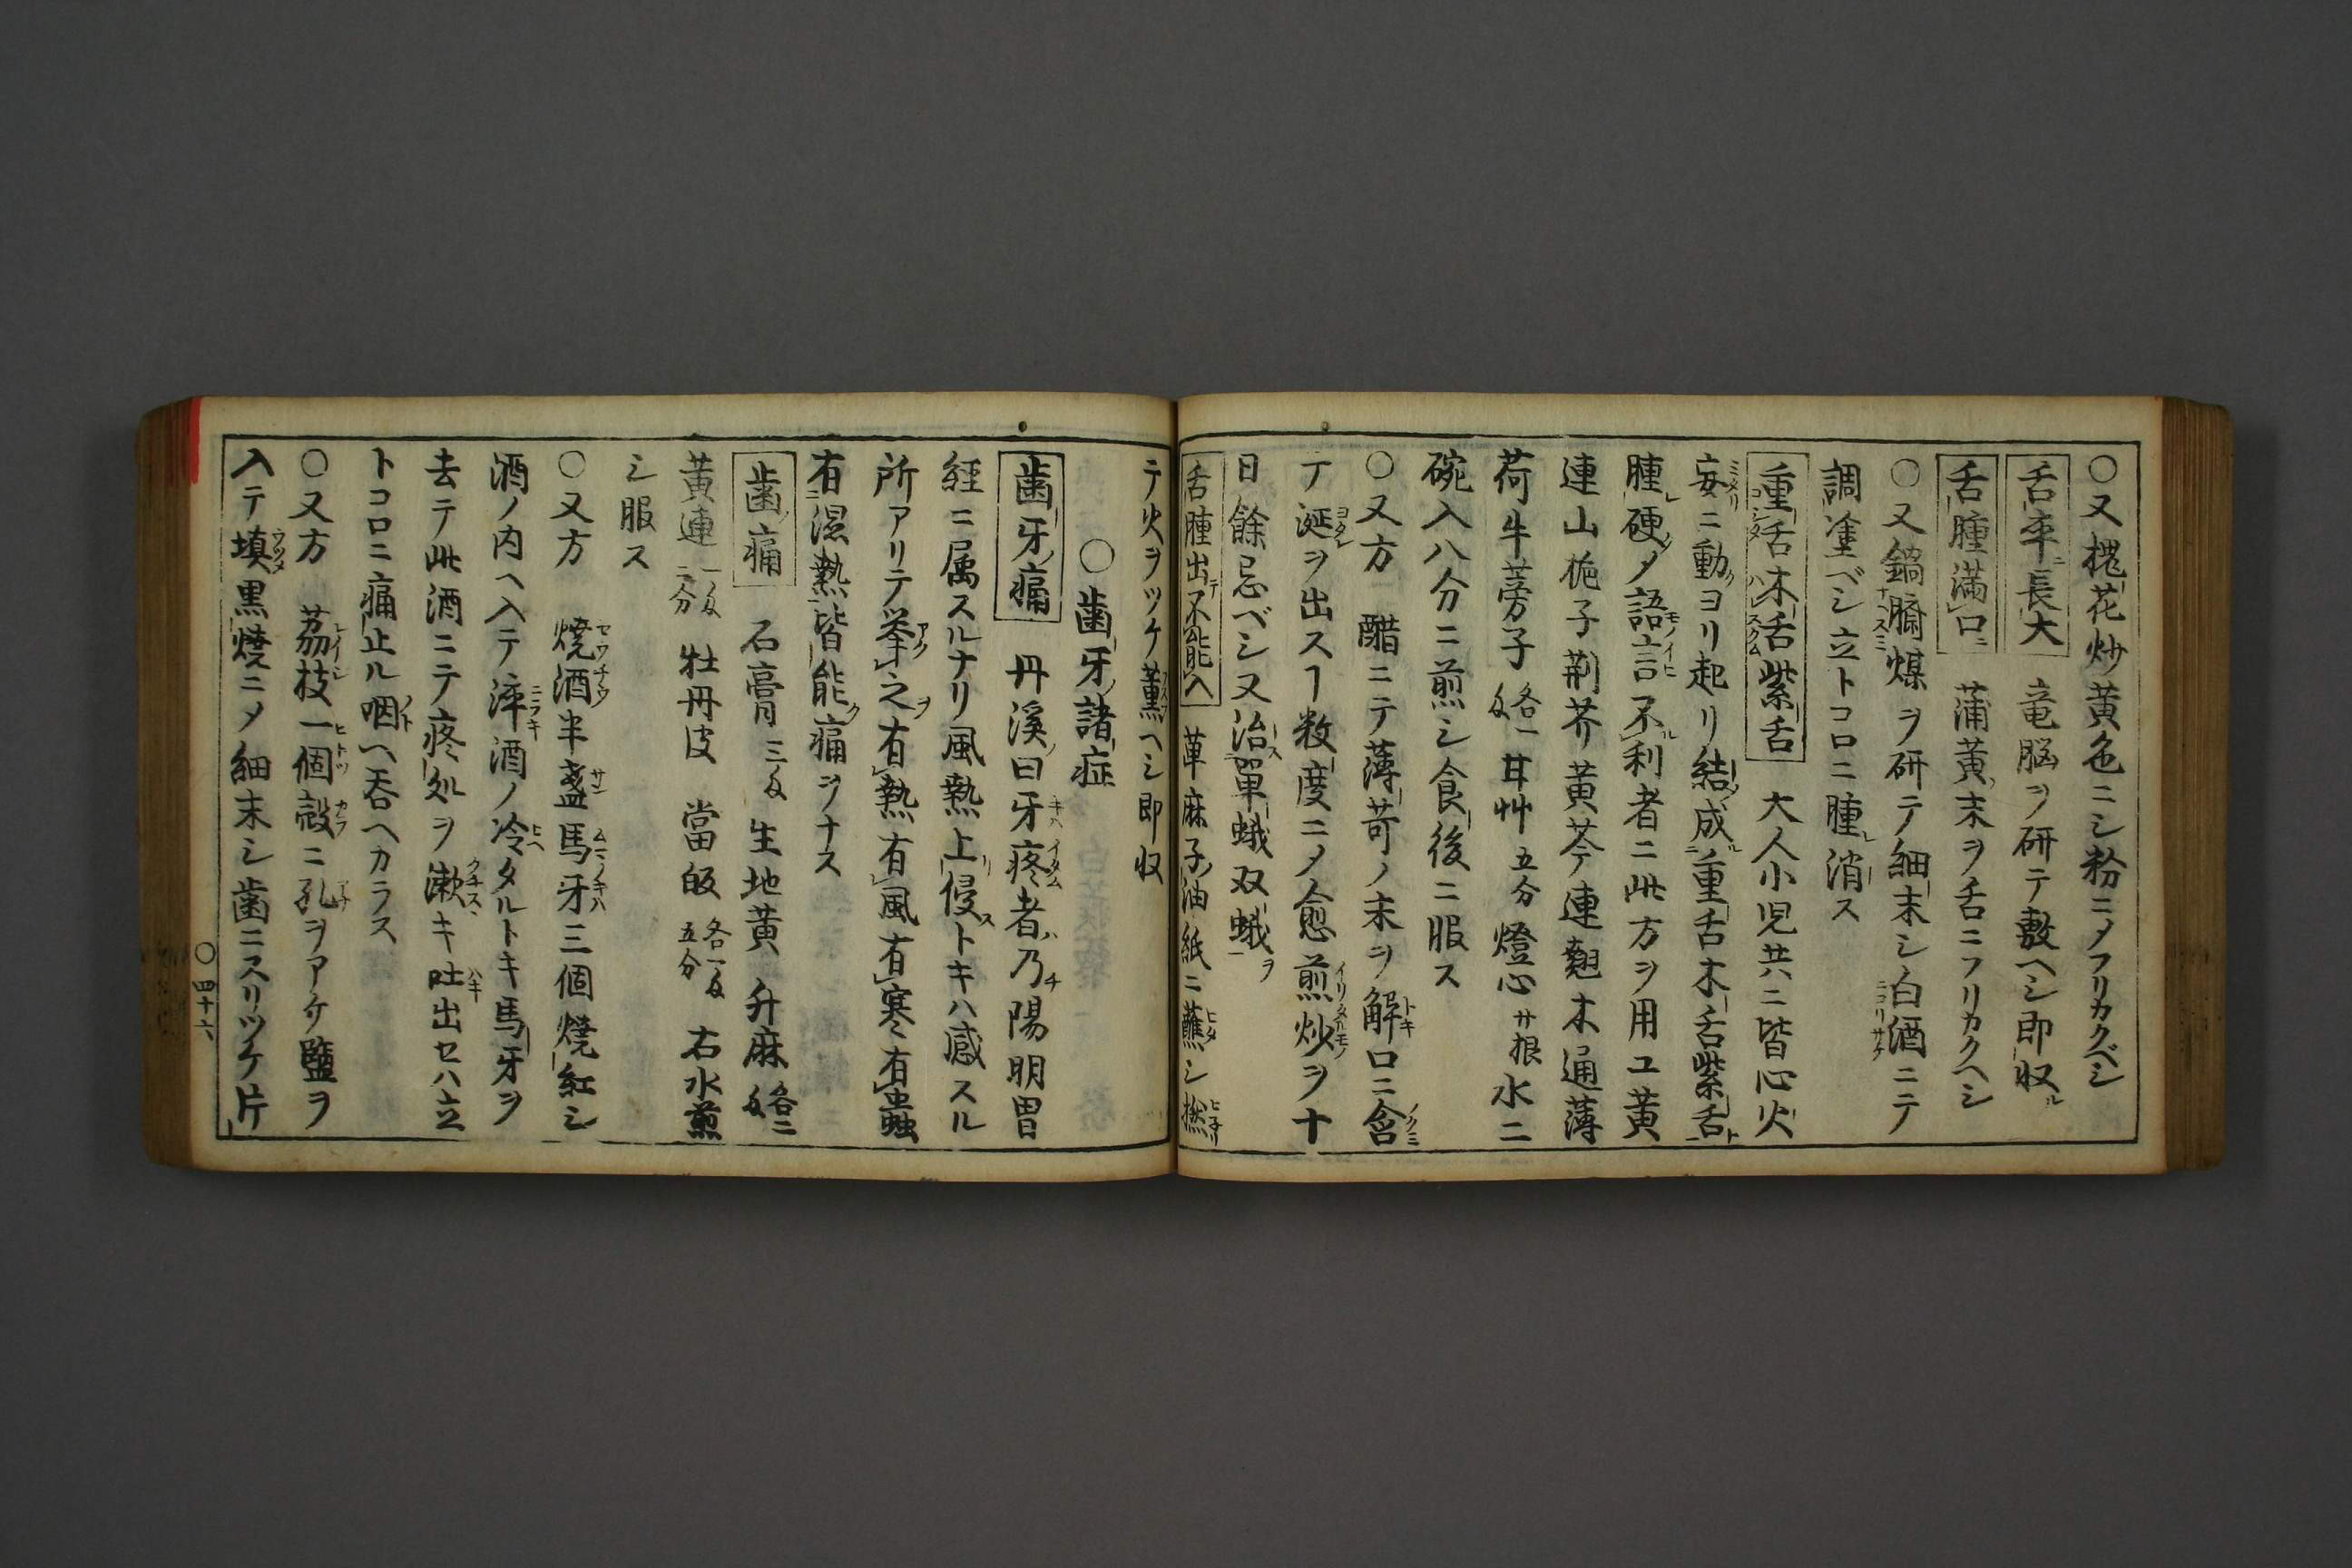 〇又槐花炒黄色ニシ粉ニ〆フリカクベシ
舌卒長大 竜脳ヲ研テ敷ヘシ即収ル
舌腫満口 蒲黄末ヲ舌ニフリカクヘシ
〇又鍋臍煤ヲ研テ細末シ白酒ニテ
調塗ベシ立トコロニ腫消ス
重舌木舌紫舌 大人小児共ニ皆心火
妄ニ動ヨリ起リ結成重舌木舌紫舌ト
腫硬〆語言不利者ニ此方ヲ用ユ黄
連山梔子荊芥黄芩連翹木通薄
荷牛蒡子各一匁甘艸五分燈心廿根水二
碗入八分ニ煎シ食後ニ服ス
〇又方 醋ニテ薄苛ノ末ヲ解口ニ含
テ涎ヲ出スヿ数度ニ〆愈煎炒ヲ十
日餘忌ベシ又治單蛾双蛾ヲ
舌腫出テ不能入 萆麻子油紙ニ蘸シ撚
テ火ヲツケ薫ヘシ即収
〇歯牙諸症
歯牙痛 丹溪曰牙疼者ハ乃陽明胃
経ニ属スルナリ風熱上侵ストキハ感スル
所アリテ挙之有熱有風有寒有蟲
有湿熱皆能痛ヲナス
歯痛 石膏三匁 生地黄 升麻各二匁
黄連一匁二分 牡丹皮 當皈各一匁五分 右水煎
シ服ス
〇又方 焼酒半盞馬牙三個焼紅シ
酒ノ内ヘ入テ淬酒ノ冷タルトキ馬牙ヲ
去テ此酒ニテ疼処ヲ漱キ吐出セハ立
トコロニ痛止ル咽ヘ呑ヘカラス
〇又方 茘枝一個殻ニ孔ヲアケ鹽ヲ
入テ填黒焼ニ〆細末シ歯ニスリツケ片
〇四十六